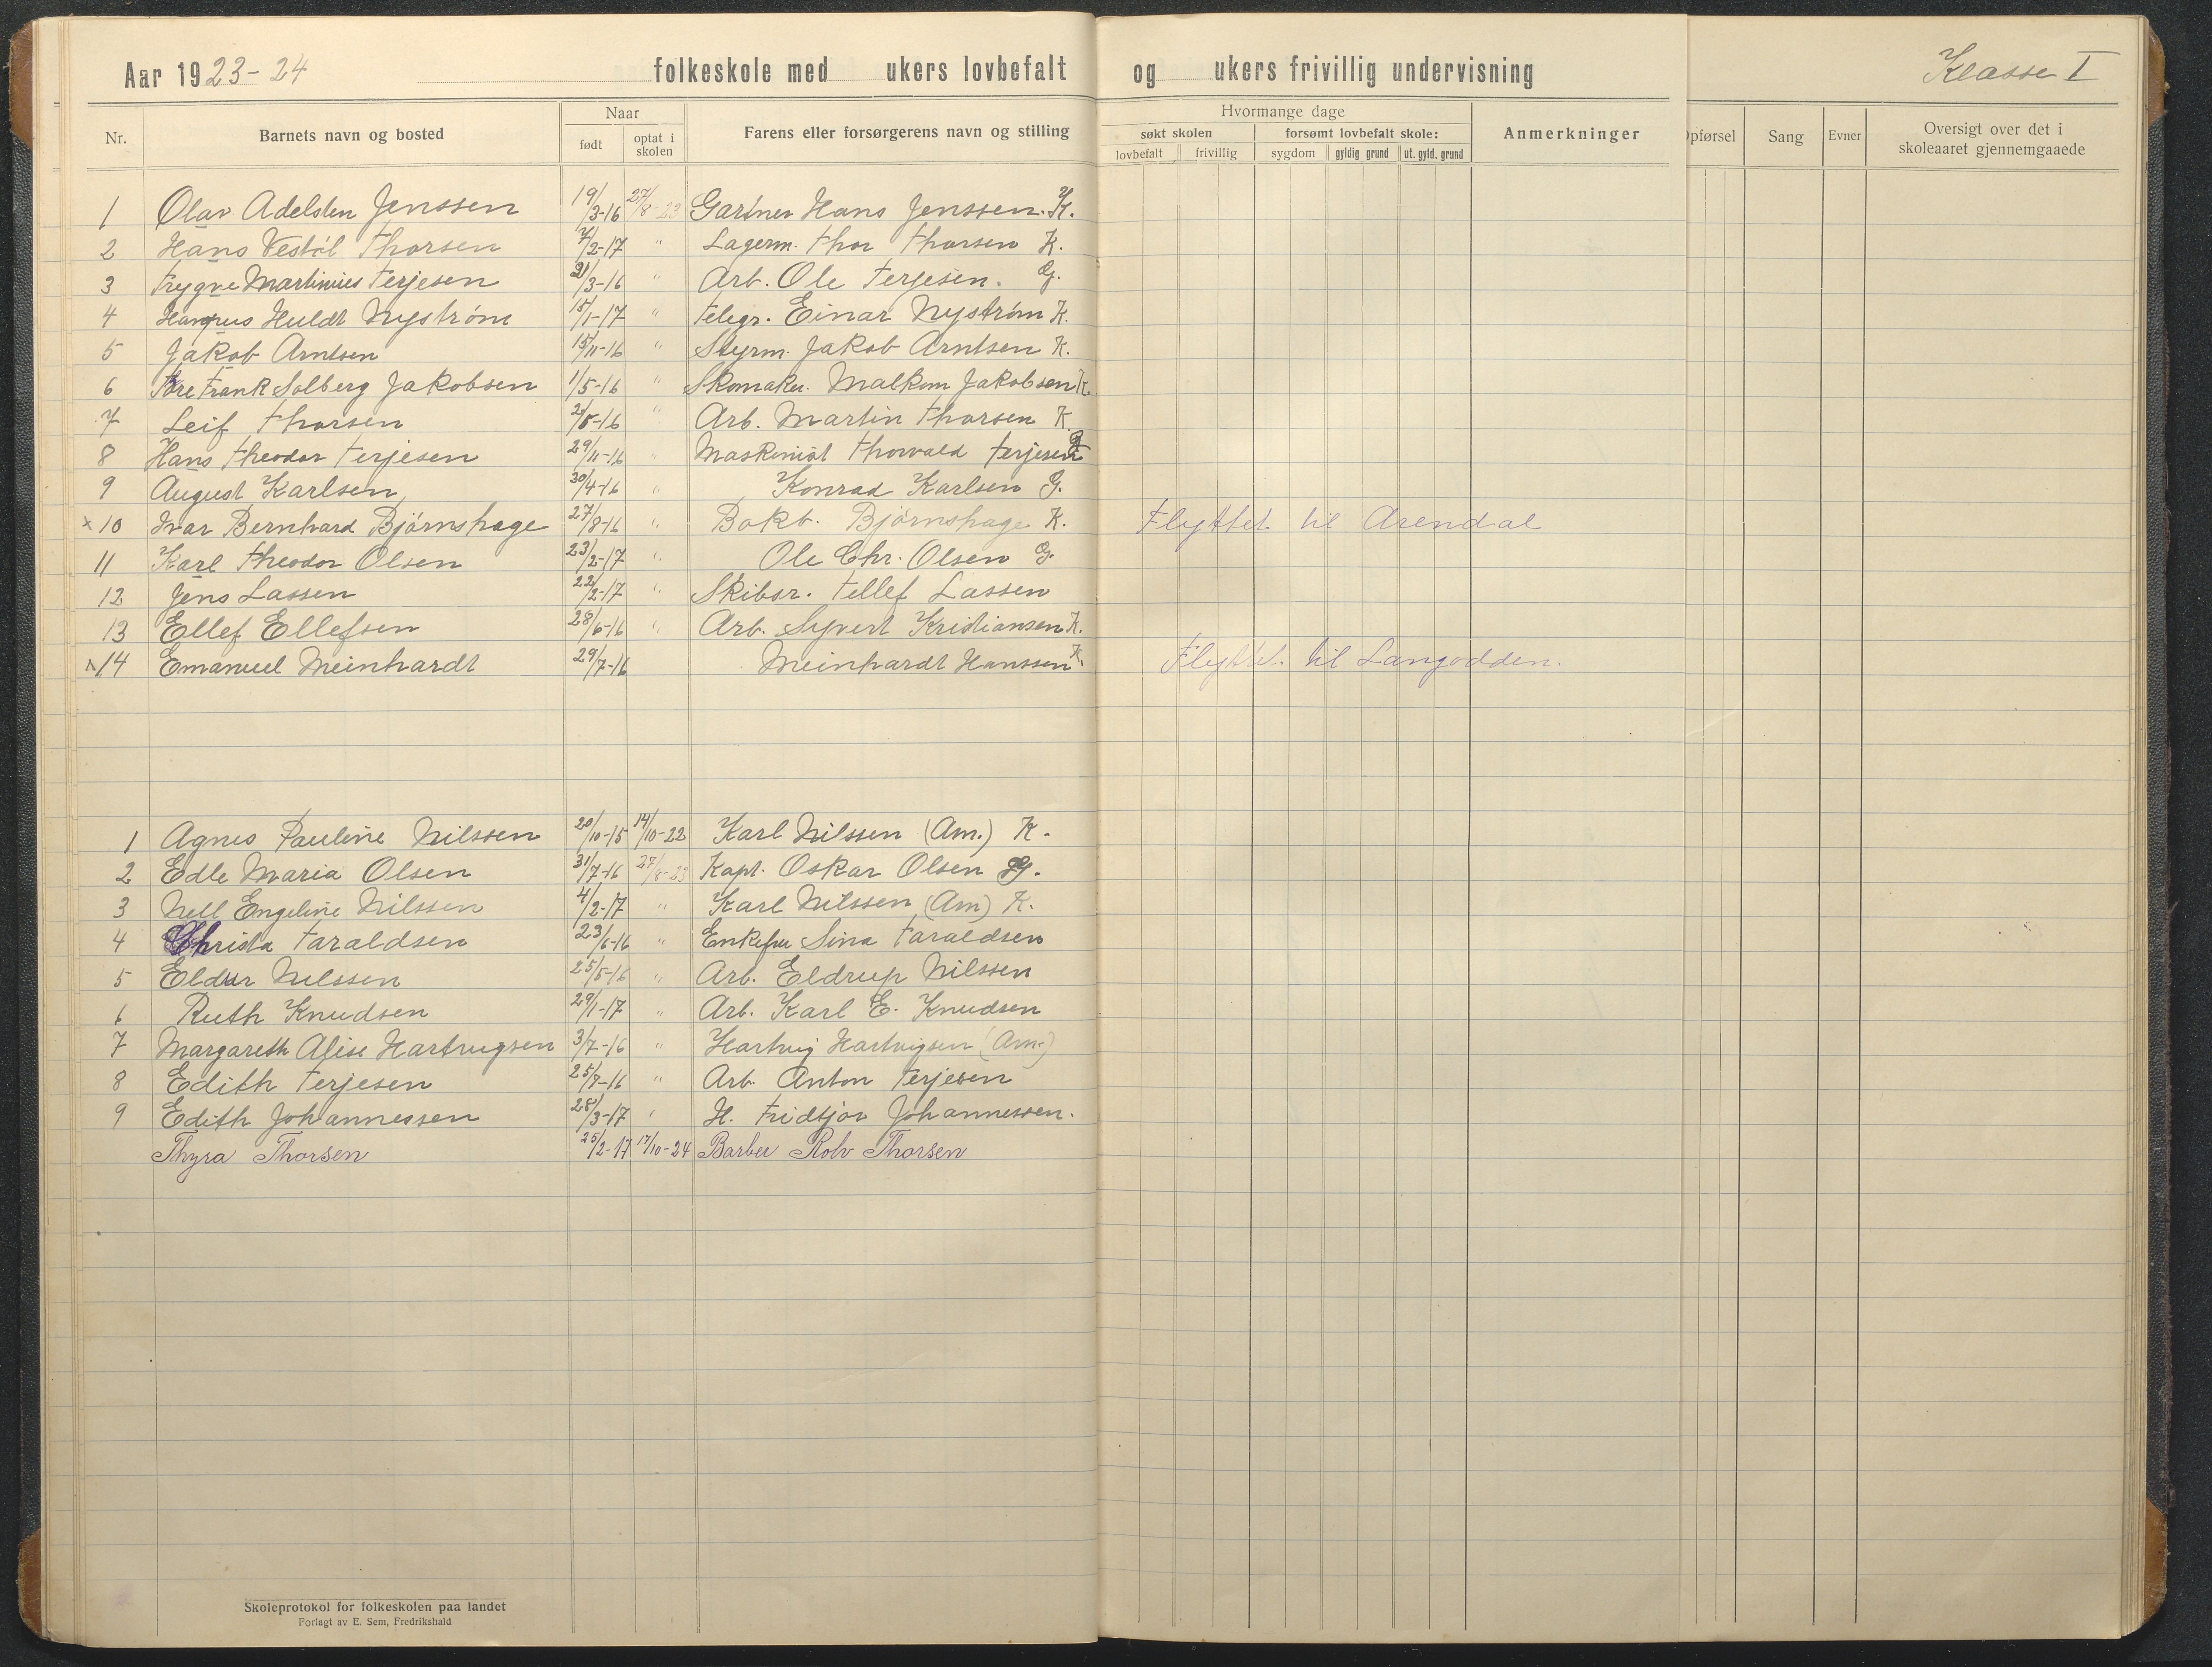 Aar 1923-24 folkeskole med ukers lovbefalt og ukers frivillig undervisning Klasse I
Nr. Barnets navn og bosted Naar Farens eller forsørgerens navn og stilling Hvormange dage Anmerkninger Opførsel Sang Evner Oversigt over det i skoleaaret gjennemgaaede
født optat i skolen søkt skolen forsømt lovbefalt skole:
lovbefalt frivillig sygdom gyldig grund ut. gyld. grund
1 Olav Adelsten Jenssen 19/3-16 27/8-23 Gartner Hans Jenssen. K.
2 Hans Vestøl Thorsen 7/2-17 " Lagerm. Thor Thorsen K.
3 Trygve Martinius Terjesen 21/3-16 " Arb. Ole Terjesen. G.
4 Huldt Nystrøm 15/1-17 " Telegr. Einar Nystrøm K.
5 Jakob Arntsen 15/11-16 " Styrm. Jakob Arntsen K.
6 Tore Frank Solberg Jakobsen 1/5-16 " Skomaker. Malkom Jakobsen K.
7 Leif Thorsen 2/5-16 " Arb. Martin Thorsen K.
8 Hans Theodor Terjesen 29/11-16 " Maskinist Thorvald Terjesen G
9 August Karlsen 30/4-16 " Konrad Karlsen G.
x 10 Ivar Bernhard Bjørnshage 27/8-16 " Bokb. Bjørnshage K. Flyttet til Arendal
11 Karl Theodor Olsen 23/2-17 " Ole Chr. Olsen G.
12 Jens Lassen 22/2-17 " Skibsr. Tellef Lassen
13 Ellef Ellefsen 28/6-16 " Arb. Syvert Kristiansen K.
x 14 Emanuel Meinhardt 29/7-16 Meinhardt Hanssen K. Flyttet til Langodden.
1 Agnes Pauline Nilssen 20/10-15 14/10-22 Karl Nilssen (Am.) K.
2 Edle Maria Olsen 31/7-16 27/8-23 Kapt. Oskar Olsen G.
3 Nell Engeline Nilssen 4/2-17 " Karl Nilssen (Am) K.
4 Christa Taraldsen 23/6-16 " Enkefru Sina Taraldsen
5 Eldur Nilssen 25/5-16 " Arb. Eldrup Nilssen
6 Ruth Knudsen 29/1-17 " Arb. Karl E. Knudsen
7 Margareth Alise Hartvigsen 3/7-16 " Hartvig Hartvigsen (Am.)
8 Edith Terjesen 25/8-16 " Arb. Anton Terjesen
9 Edith Johannessen 28/3-17 " H. Fridtjov Johannessen.
Thyra Thorsen 25/2-17 17/10-24 Barber Rolv Thorsen
Skoleprotokol for folkeskolen paa landet
Forlagt av E. Sem, Fredrikshald